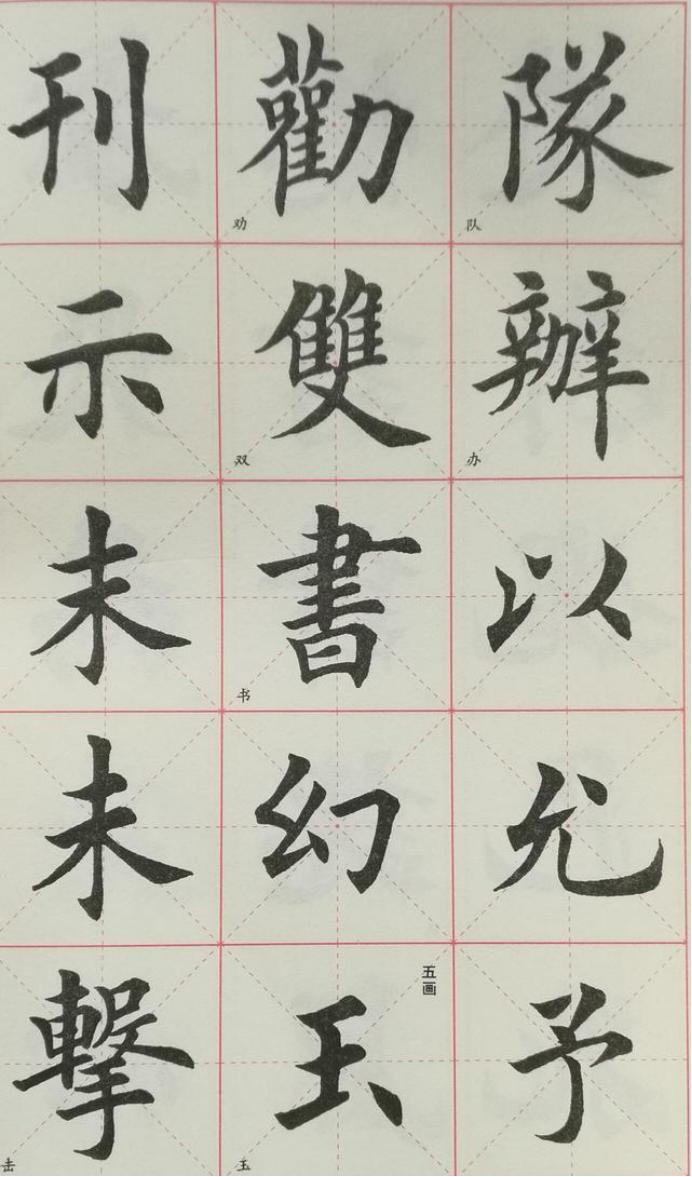 隊
队
辦
办
以
允
予
勸
劝
雙
双
書
书
幻
五画
玉
玉
刊
示
末
未
擊
击